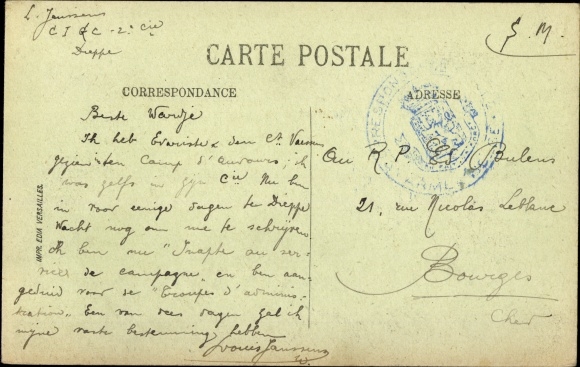 L. Janssens
C I & C - 2e Cie
Dieppe
S. M.
CARTE POSTALE
CORRESPONDANCE
ADRESSE
Beste Wardje
Ik heb Evariste & den Ct
gezien ten Camp d'Auvours; ik
was zelfs in zijn Cie Nu ben
in voor eenige dagen te Dieppe
Wacht nog om me te schrijven
Ik ben nu "Inapte au ser-
vice de campagne" en ben aan-
geduid voor de "Troupes d'adminis-
tration". Een van dees dagen zal ik
mijne vaste bestemming hebben
Louis Janssens
Au R. P. Ed. Bulens
21, rue Nicolas Leblanc
Bourges
Cher
IMPR. EDIA VERSAILLES